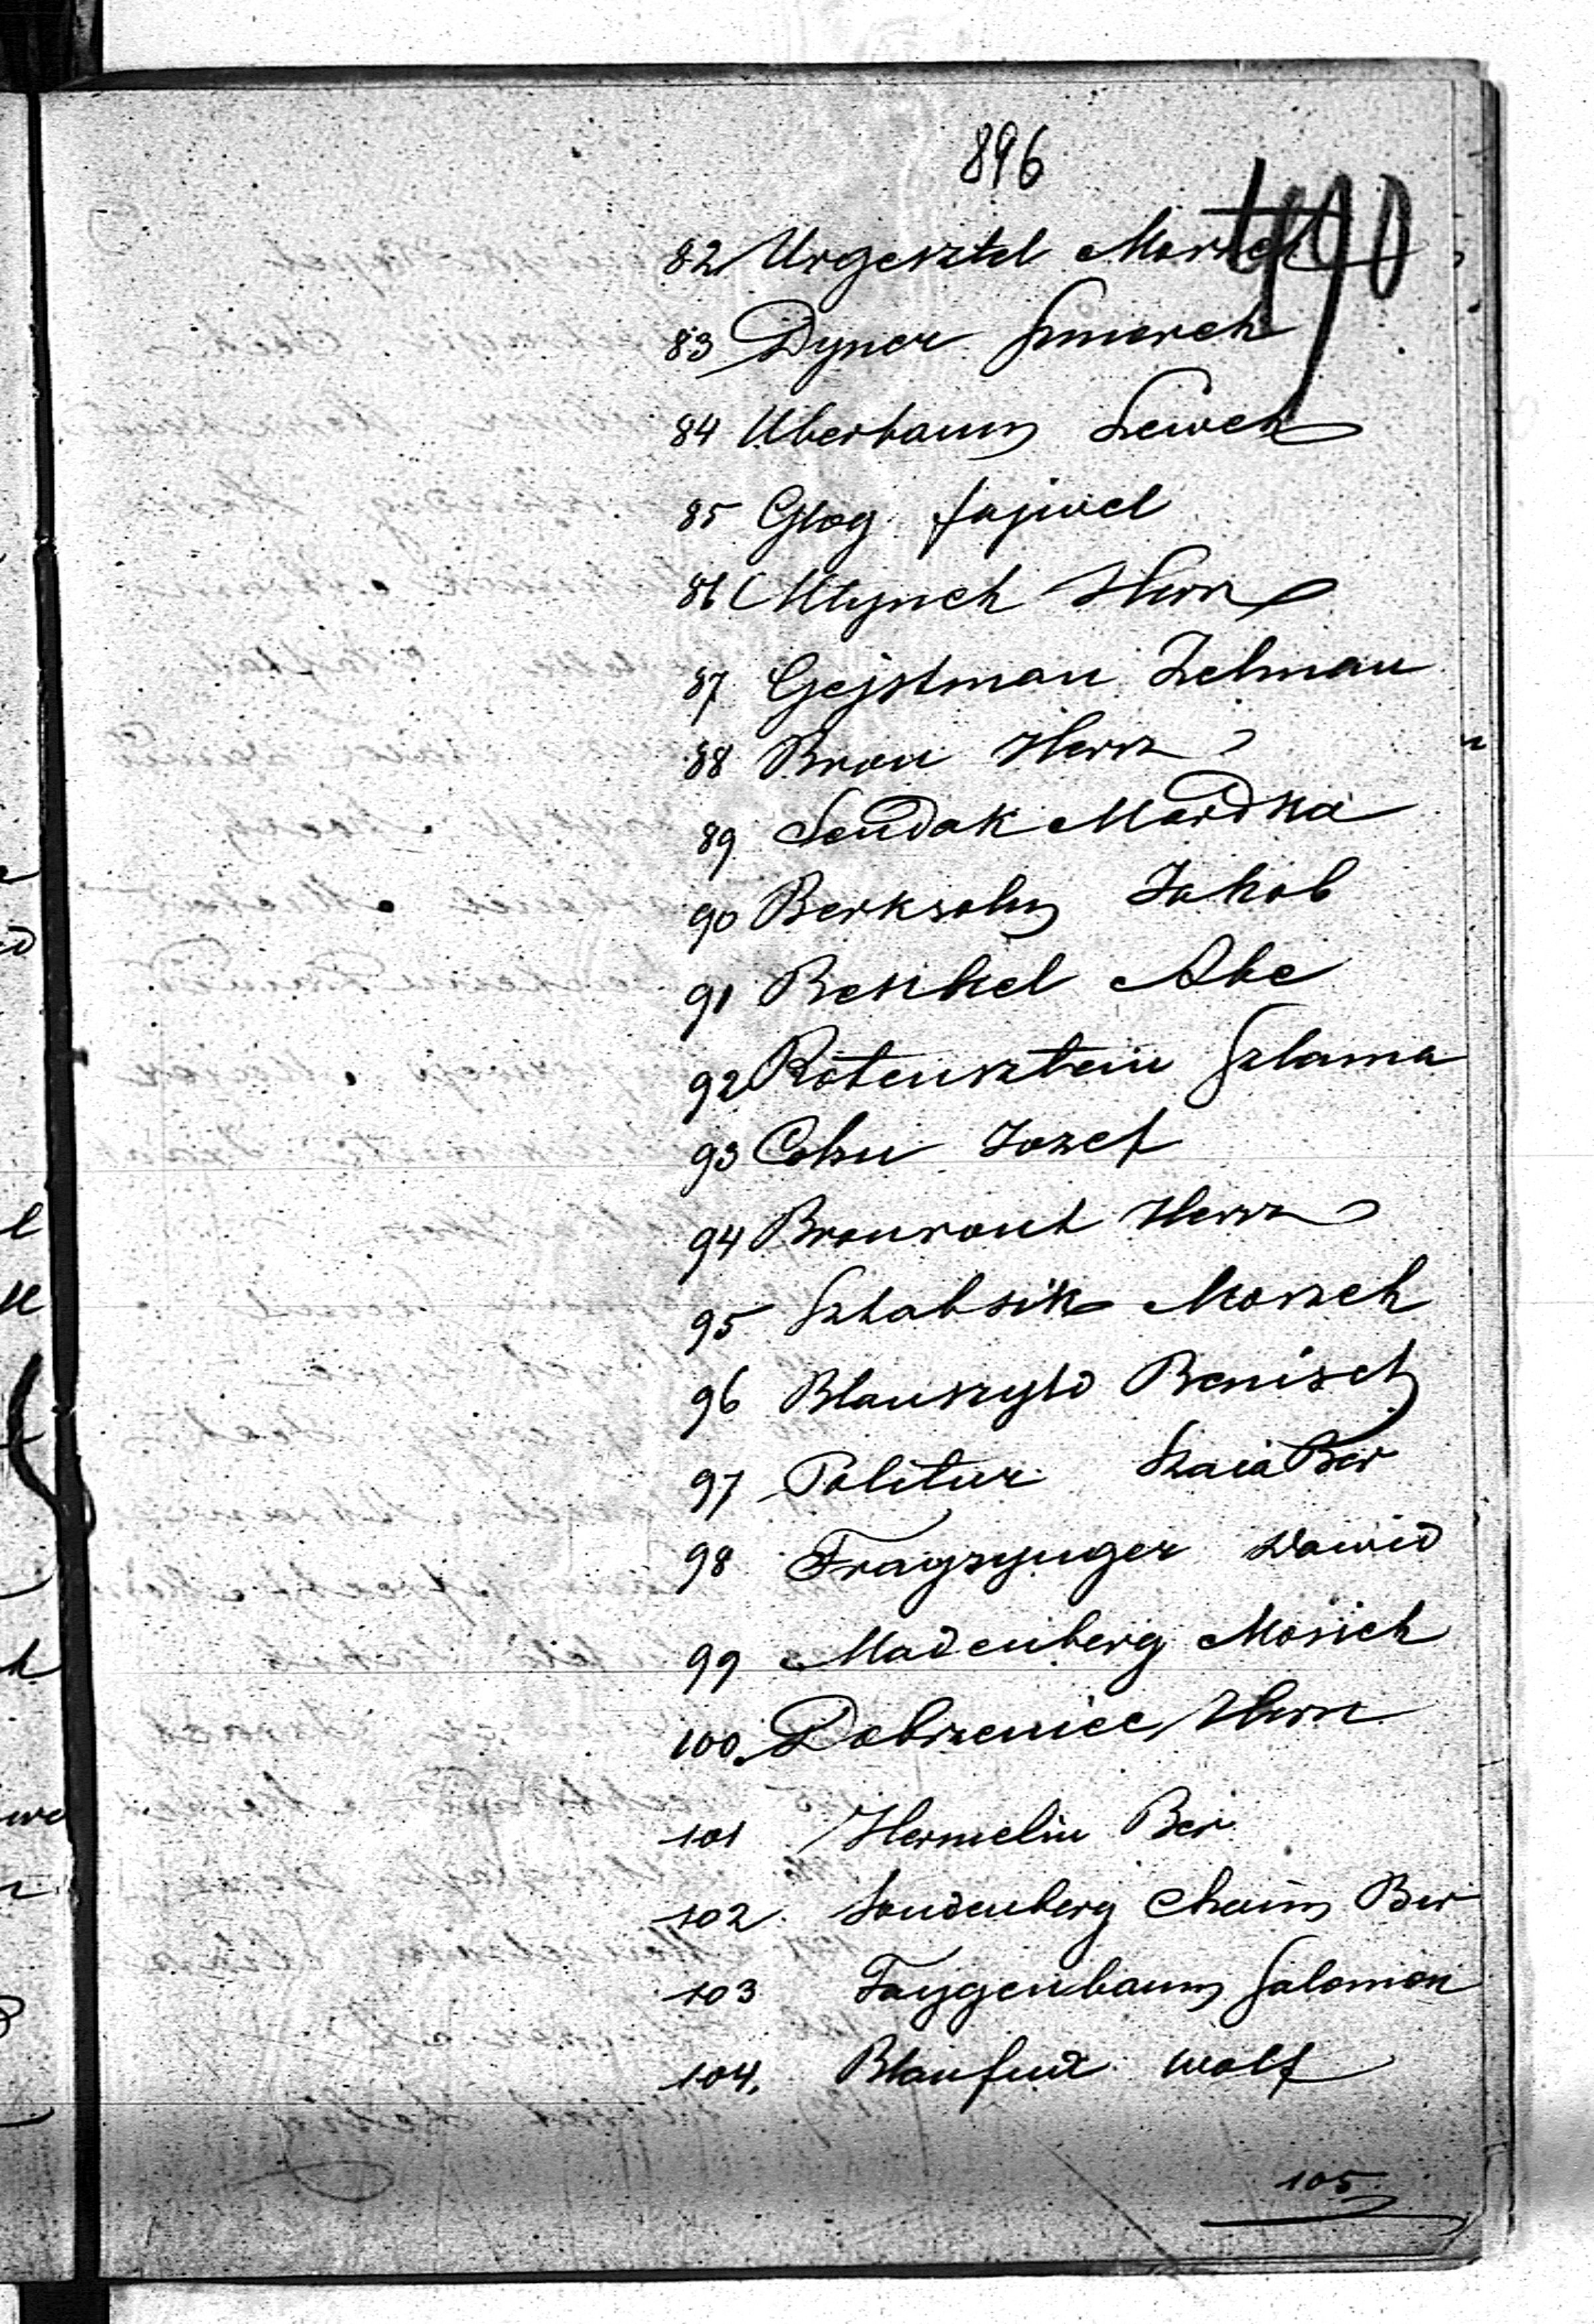 896
490
82 Urgesztel Moszek
83 Dyner Szmerek
84 Uberbaum Lewek
85 Glog fajwel
86 Młynek Hersz
87 Gejstman Zelman
88 Bron Hersz
89 Sendak Mordka
90 Berksohn Jakob
91 Beskel Abe
92 Rotensztein Szlama
93 Cohn Jozef
94 Bronrout Hersz
95 Szkabsik Moszek
96 Blauszyld Benisch
97 Politur Szaia Ber
98 Fragszynger Dawid
99 Madenberg Mosiek
100. Dobrzeniec Hersz
101 Hermelin Ber
102. Soudenberg Chaim Ber
103 Faygenbaum Salomon
104. Blaufux Wolf
105